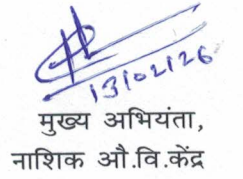 13/02/26
मुख्य अभियंता,
नाशिक औ.वि.केंद्र